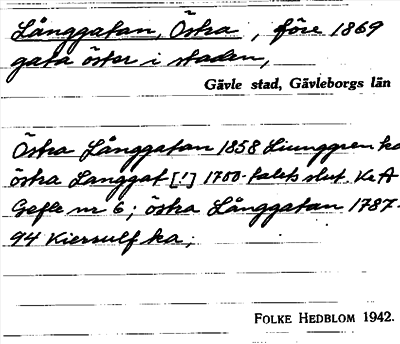 Långgatan, Östra, före 1869
gata öster i staden,
Gävle stad, Gävleborgs län
Östra Långgatan 1858 Liunggren ka
östra Langgat [!] 1700-talets slut. Ka A
Gefle nr 6; östra Långgatan 1787-
94 Kiersulf ka;
FOLKE HEDBLOM 1942.